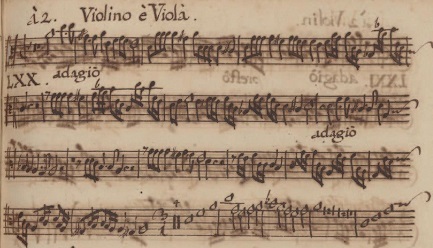 à 2. Violino è Violà.
LXX. adagiò
adagiò